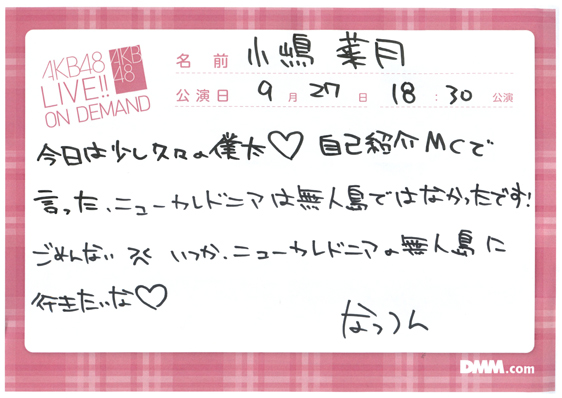 AKB48
LIVE!!
ON DEMAND
AKB
48
名前 小嶋 菜月
公演日 9月27日 18:30公演
今日は少し久々の僕太♡ 自己紹介MCで
言った、ニューカレドニアは無人島ではなかったです!
ごめんない いつか、ニューカレドニアの無人島に
行きたいな♡
なっつん
DMM.com